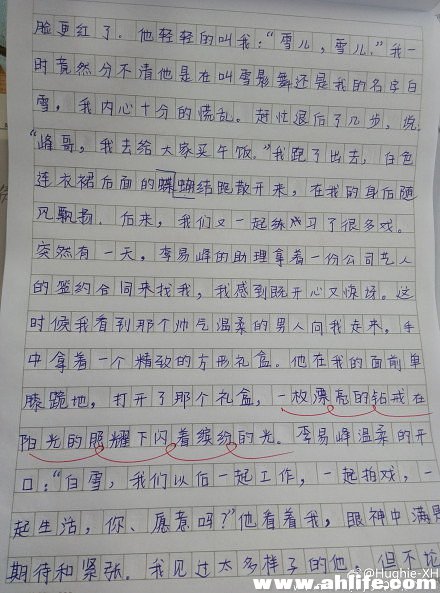 脸更红了。他轻轻的叫我："雪儿，雪儿。"我一
时竟然分不清他是在叫雪影舞还是我的名字白
雪，我内心十分的慌乱。赶忙退后了几步，说：
"峰哥，我去给大家买午饭。"我跑了出去，白色
连衣裙后面的蝴蝶结跑散开来，在我的身后随
风飘扬。后来，我们又一起练习了很多戏。
突然有一天，李易峰的助理拿着一份公司艺人
的签约合同来找我，我感到既开心又惊讶。这
时候我看到那个帅气温柔的男人向我走来，手
中拿着一个精致的方形礼盒。他在我的面前单
膝跪地，打开了那个礼盒，一枚漂亮的钻戒在
阳光的照耀下闪着缤纷的光。李易峰温柔的开
口："白雪，我们以后一起工作，一起拍戏，一
起生活，你、愿意吗？"他看着我，眼神中满是
期待和紧张。我见过太多样子的他，但不论
@Hughie-XH
www.ahlife.com